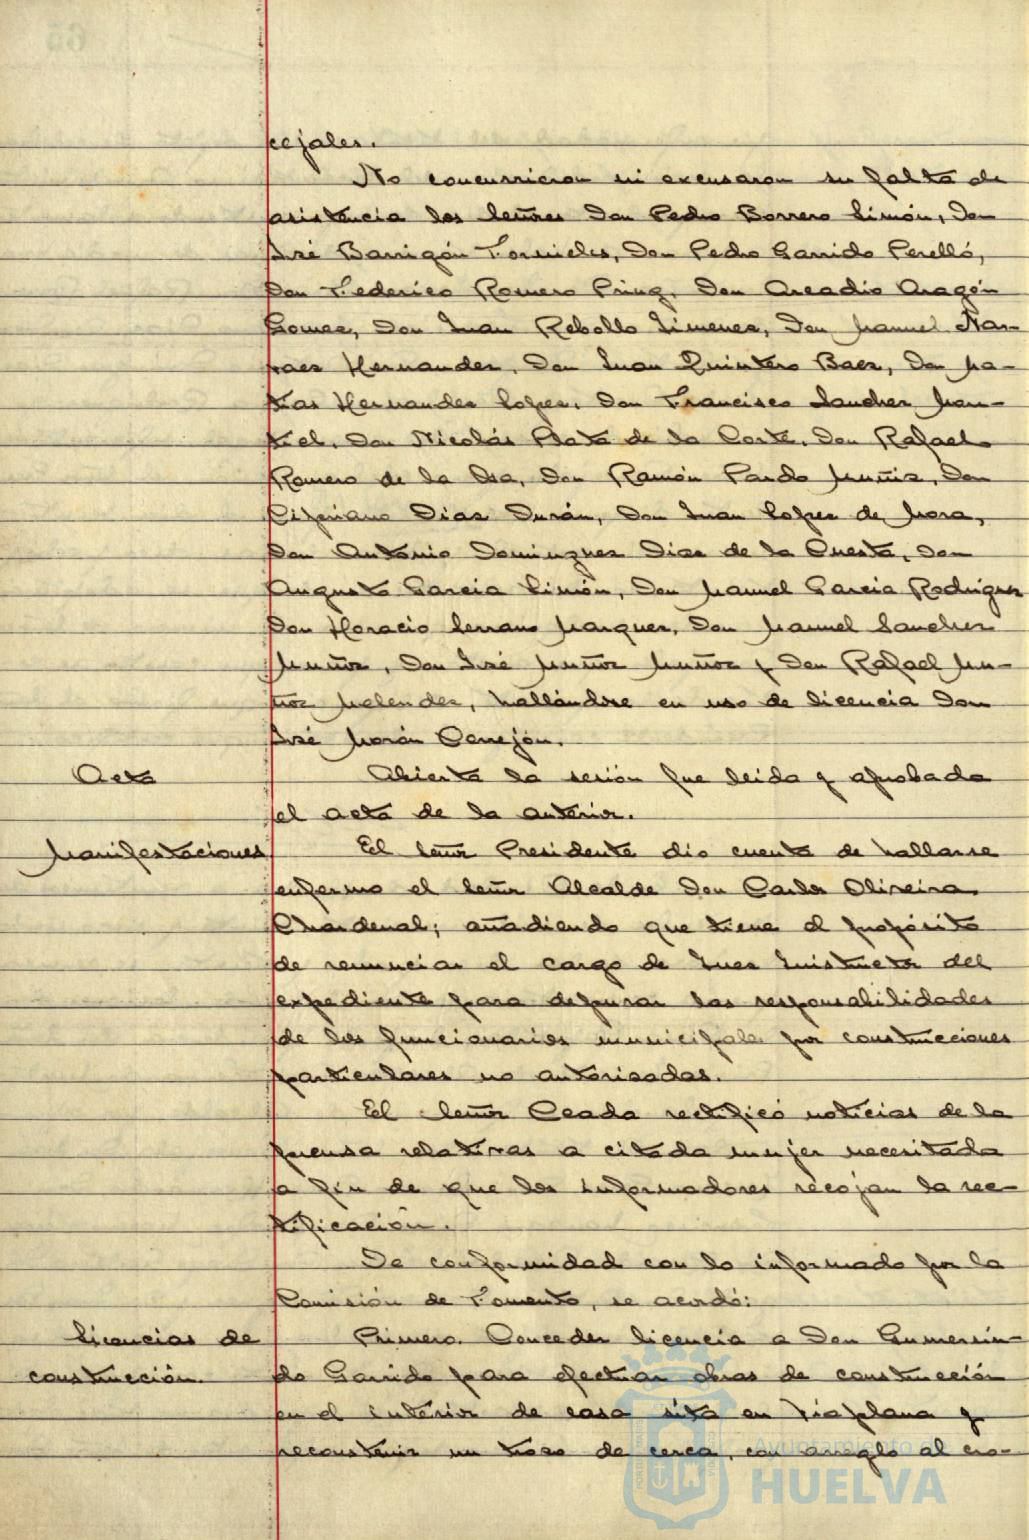 cejales.
No concurrieron ni excusaron su falta de
asistencia los señores Don Pedro Borrero Limón, Don
José Barrigón Fornieles, Don Pedro Garrido Perelló,
Don Federico Romero Pring, Don Arcadio Aragón
Gomez, Don Juan Rebollo Jimenez, Don Manuel Nar-
vaez Hernandez, Don Juan Quintero Baez, Don Ma-
tias Hernandez Lopez, Don Francisco Sanchez Mon-
tiel, Don Nicolás Plata de la Corte, Don Rafael
Romero de la Osa, Don Ramón Pardo Muñiz, Don
Cipriano Diaz Durán, Don Juan Lopez de Mora,
Don Antonio Dominguez Diaz de la Cuesta, Don
Augusto Garcia Limón, Don Manuel Garcia Rodriguez
Don Horacio Serrano Marquez, Don Manuel Sanchez
Muñoz, Don José Muñoz Muñoz y Don Rafael Mu-
ñoz Melendez, hallándose en uso de licencia Don
José Morón Cerrejón.
Acta
Abierta la sesión fue leida y aprobada
el acta de la anterior.
Manifestaciones
El Señor Presidente dio cuenta de hallarse
enfermo el Señor Alcalde Don Carlos Oliveira
Chardenal; añadiendo que tiene el propósito
de renunciar el cargo de Juez Instructor del
expediente para depurar las responsabilidades
de los funcionarios municipales por construcciones
particulares no autorizadas.
El Señor Ceada rectificó noticias de la
prensa relativas a citada mujer necesitada
a fin de que los informadores recojan la rec-
tificación.
De conformidad con lo informado por la
Comisión de Fomento, se acordó:
Licencias de
construcción.
Primero. Conceder licencia a Don Gumersin-
do Garrido para efectuar obras de construcción
en el interior de casa sita en Viaplana y
reconstruir un trozo de cerca, con arreglo al cro-
Ayuntamiento de
HUELVA